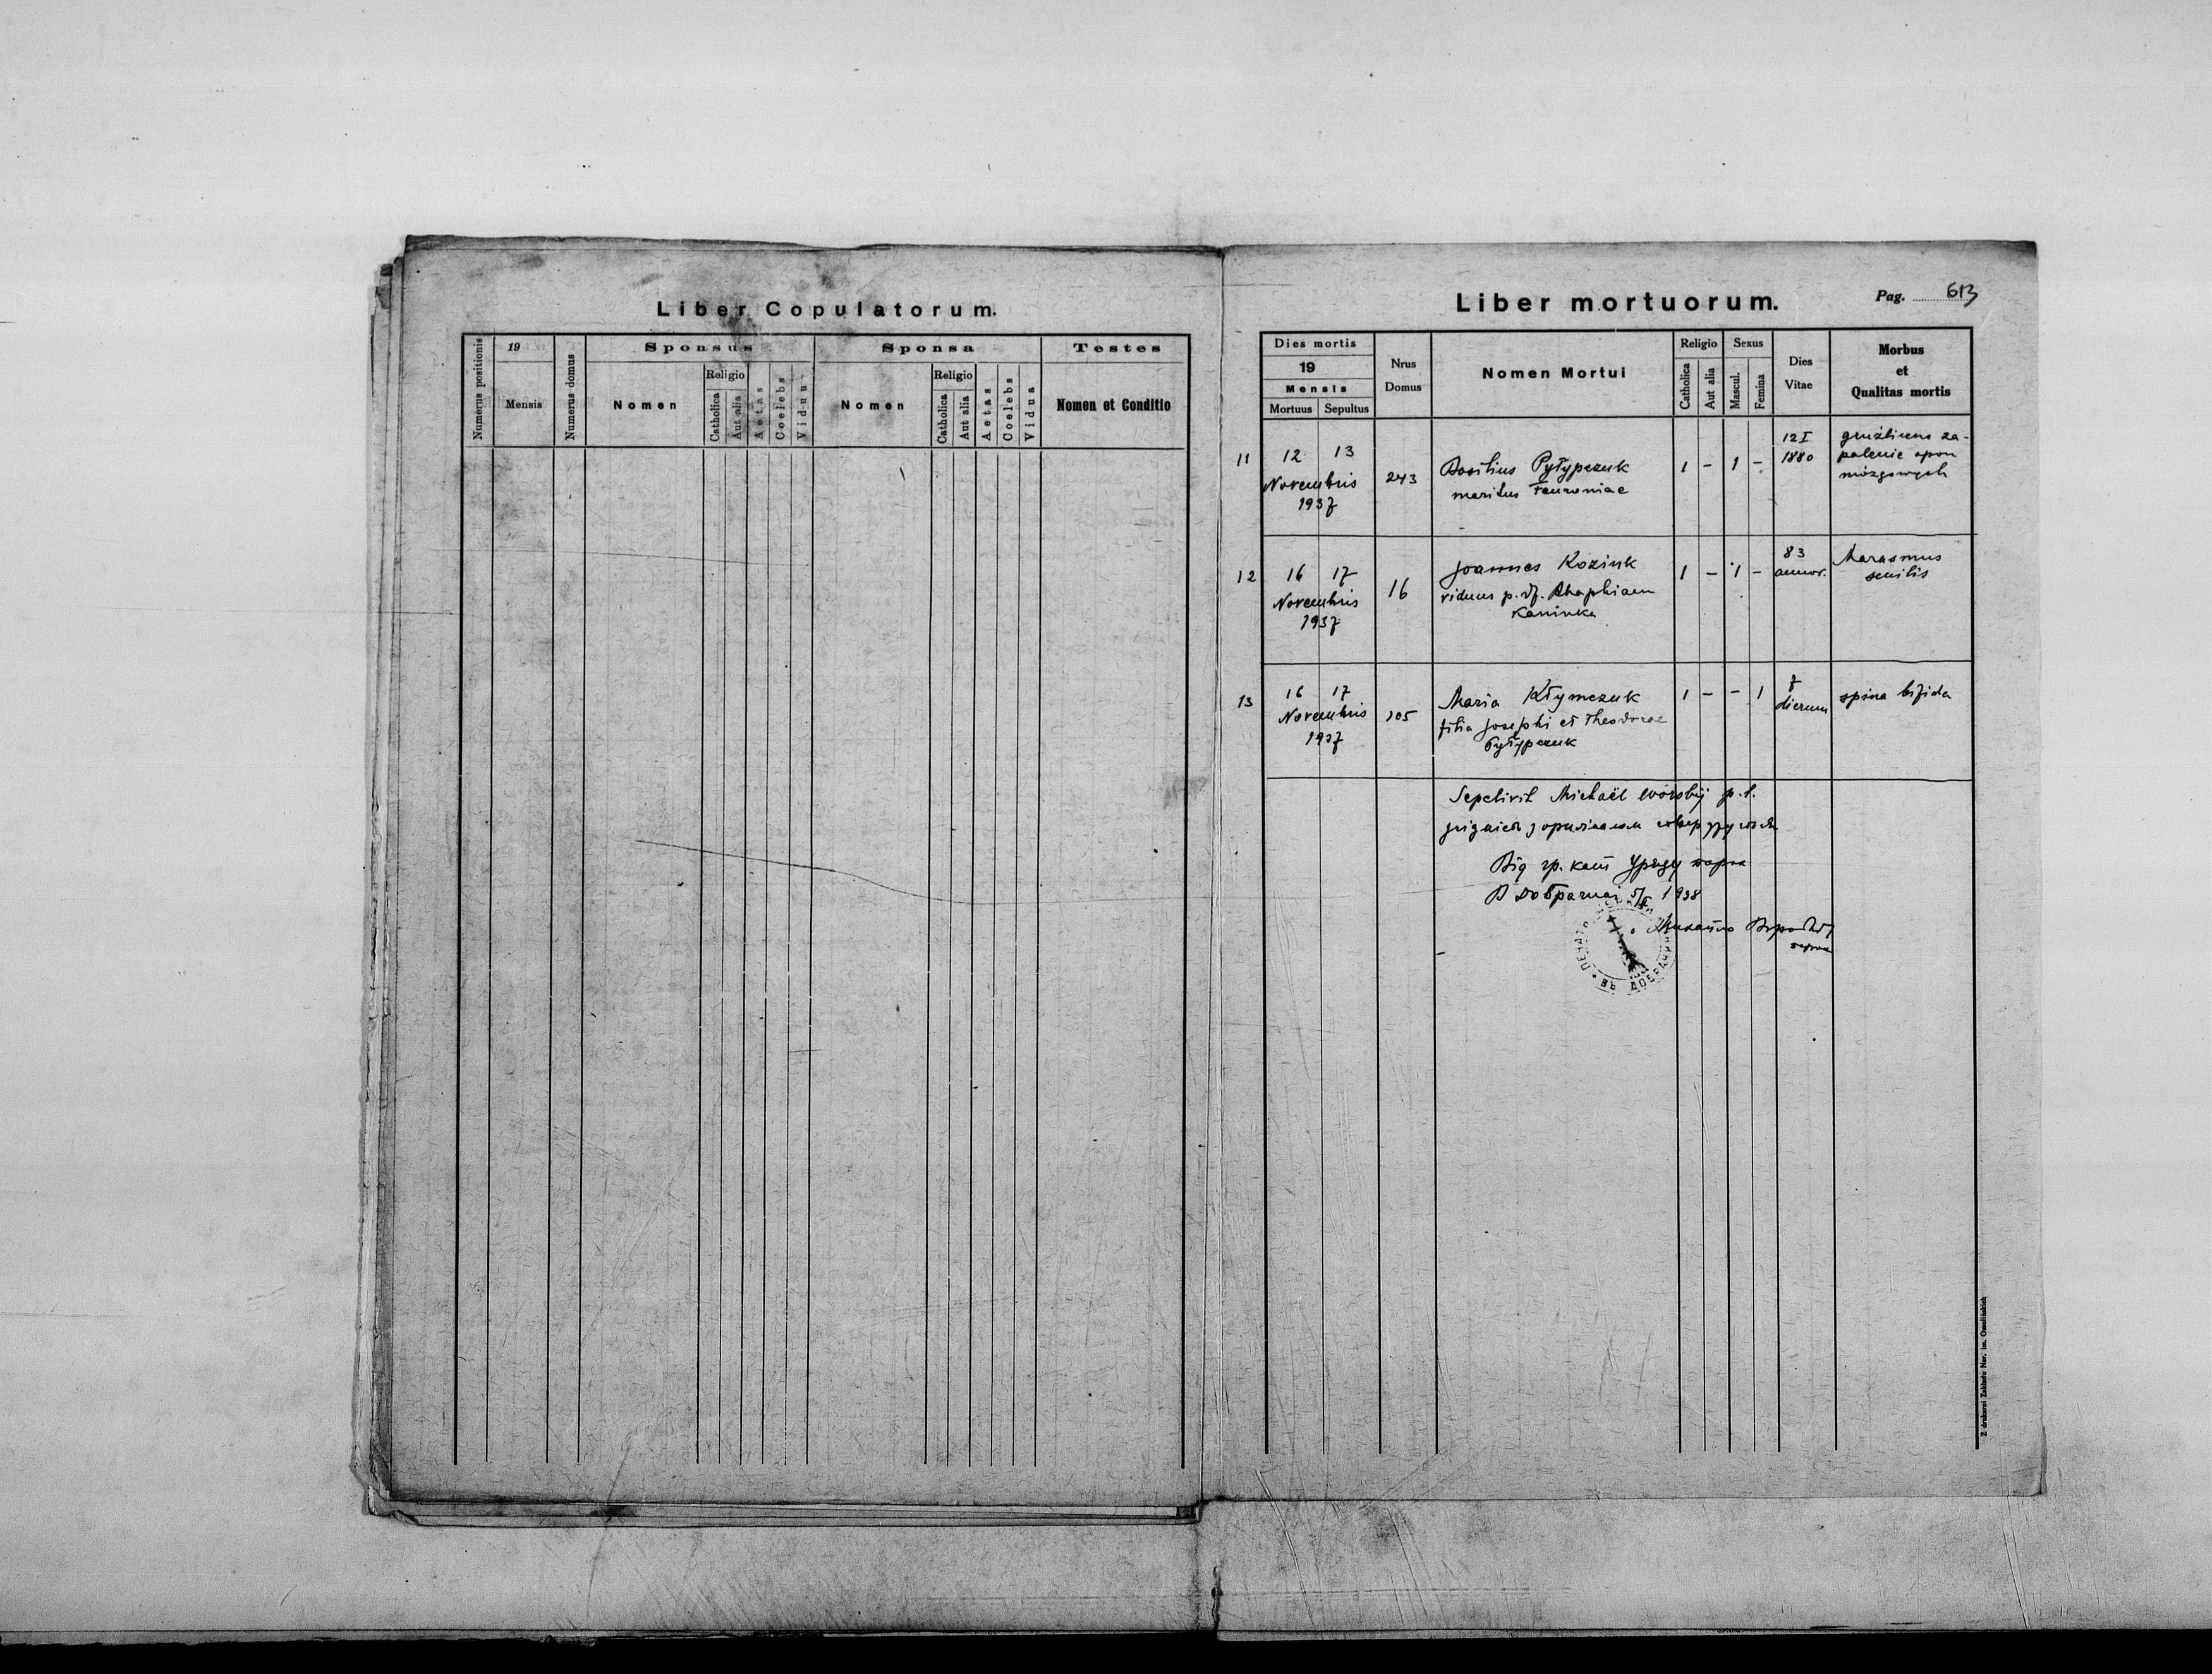 Liber Copulatorum.
Numerus positionis
19
Mensis
Numerus domus
Sponsus
Nomen
Religio
Catholica
Aut alia
Aetas
Coelebs
Viduus
Sponsa
Nomen
Religio
Catholica
Aut alia
Aetas
Coelebs
Vidua
Testes
Nomen et Conditio
Liber mortuorum.
Pag. 613
Dies mortis
19
Mensis
Mortuus Sepultus
Nrus
Domus
Nomen Mortui
Religio
Catholica
Aut alia
Sexus
Mascul.
Femina
Dies
Vitae
Morbus
et
Qualitas mortis
11
12 13
Novembris
1937
243
Basilius Pyłypczuk
maritus Feuroniae
1 - 1 -
12 I
1880
gruźlicze za-
palenie opon
mózgowych
12
16 17
Novembris
1937
16
Joannes Koziuk
viduus p. df. Ahaphiam
Kaninka
1 - 1 -
83
annor.
Marasmus
senilis
13
16 17
Novembris
1937
105
Maria Kłymczuk
filia Josephi et Theodorae
Pyłypczuk
1 - - 1
7
dierum
spina bifida
Sepelivit Michaël Worobij p. l.
Від гр. кат Уряду пароха
В Добрачині 1938
Михайло
парох
ВЪ ДОБРАЧИНѢ
Z drukarni Zakładu Nar. im. Ossolińskich